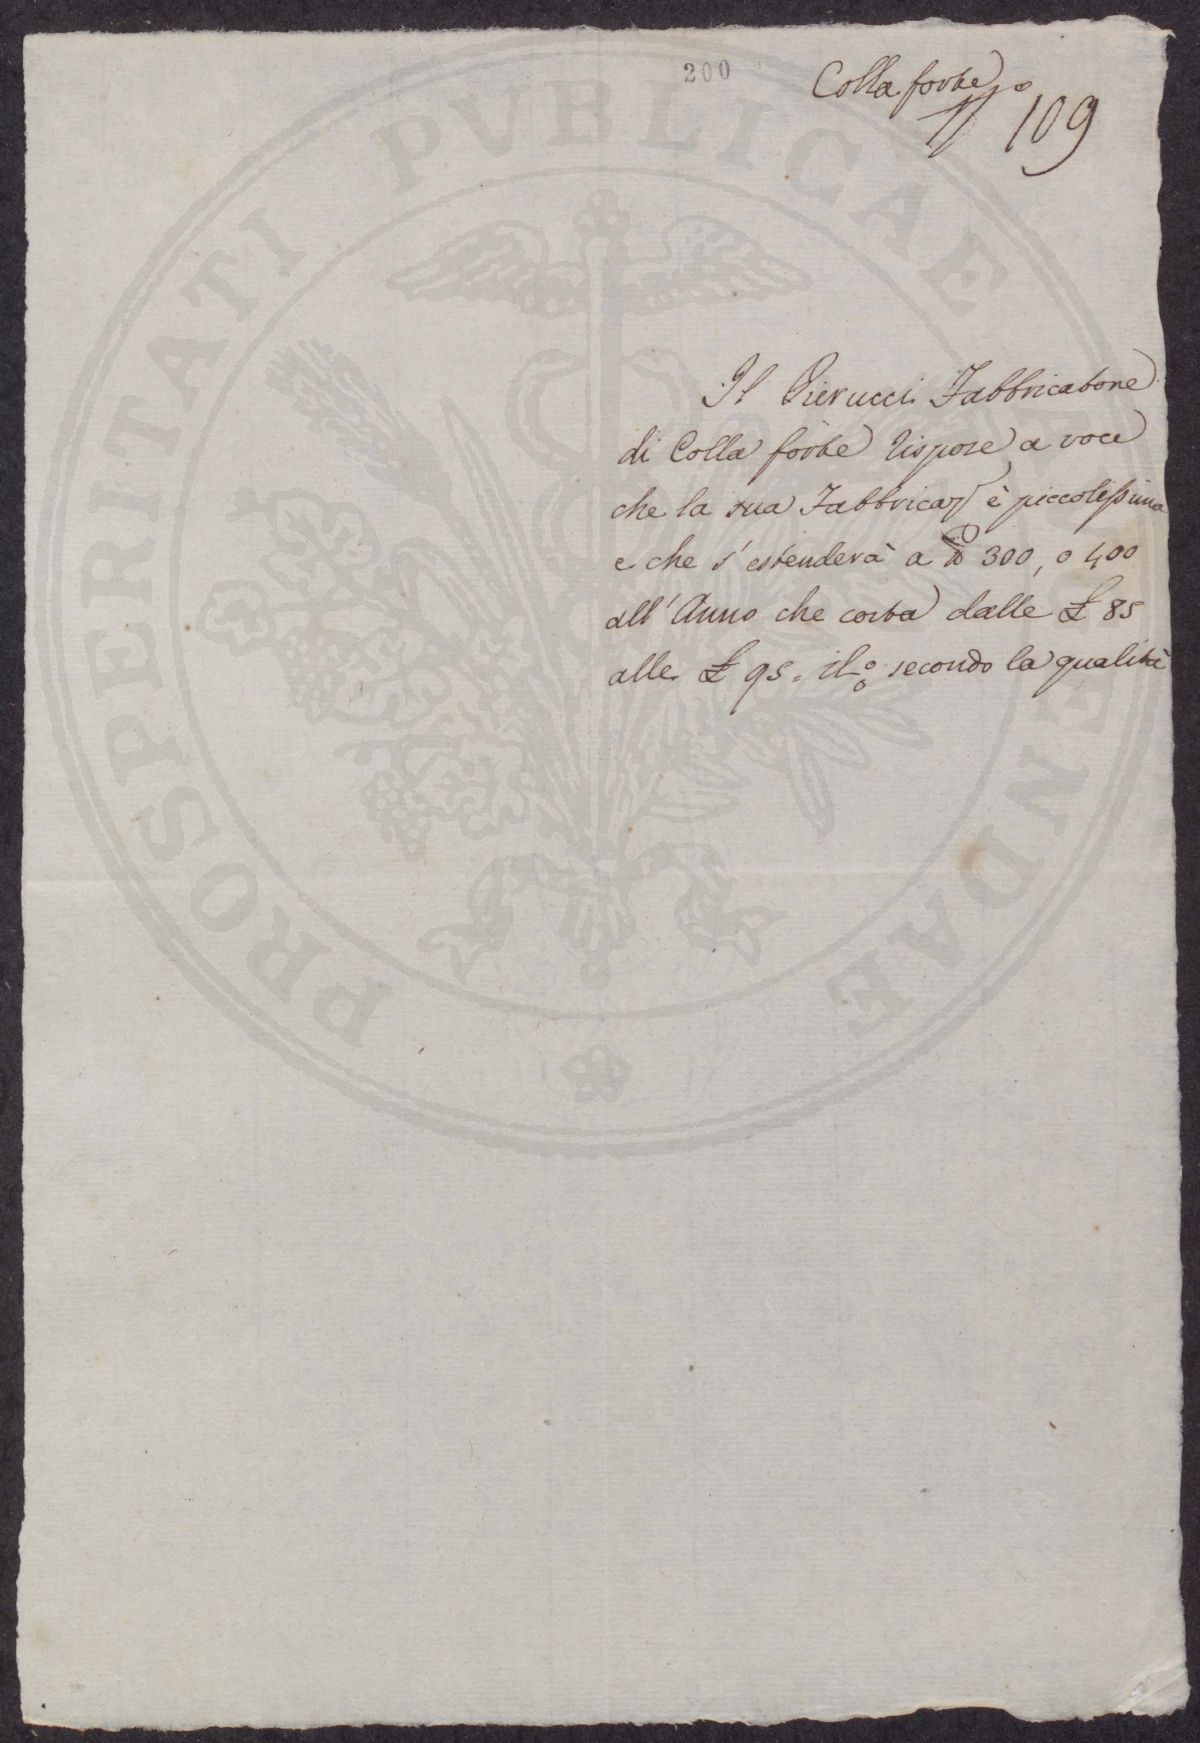 200
Colla forte
N.º 109
Il Pierucci Fabbricatore
di Colla forte rispose a voce
che la sua Fabbrica è piccolissima
e che s'estenderà a lb 300, o 400
all'Anno che costa dalle £ 85
alle £ 95. il % secondo la qualità
PROSPERITATI PVBLICAE AVGENDAE